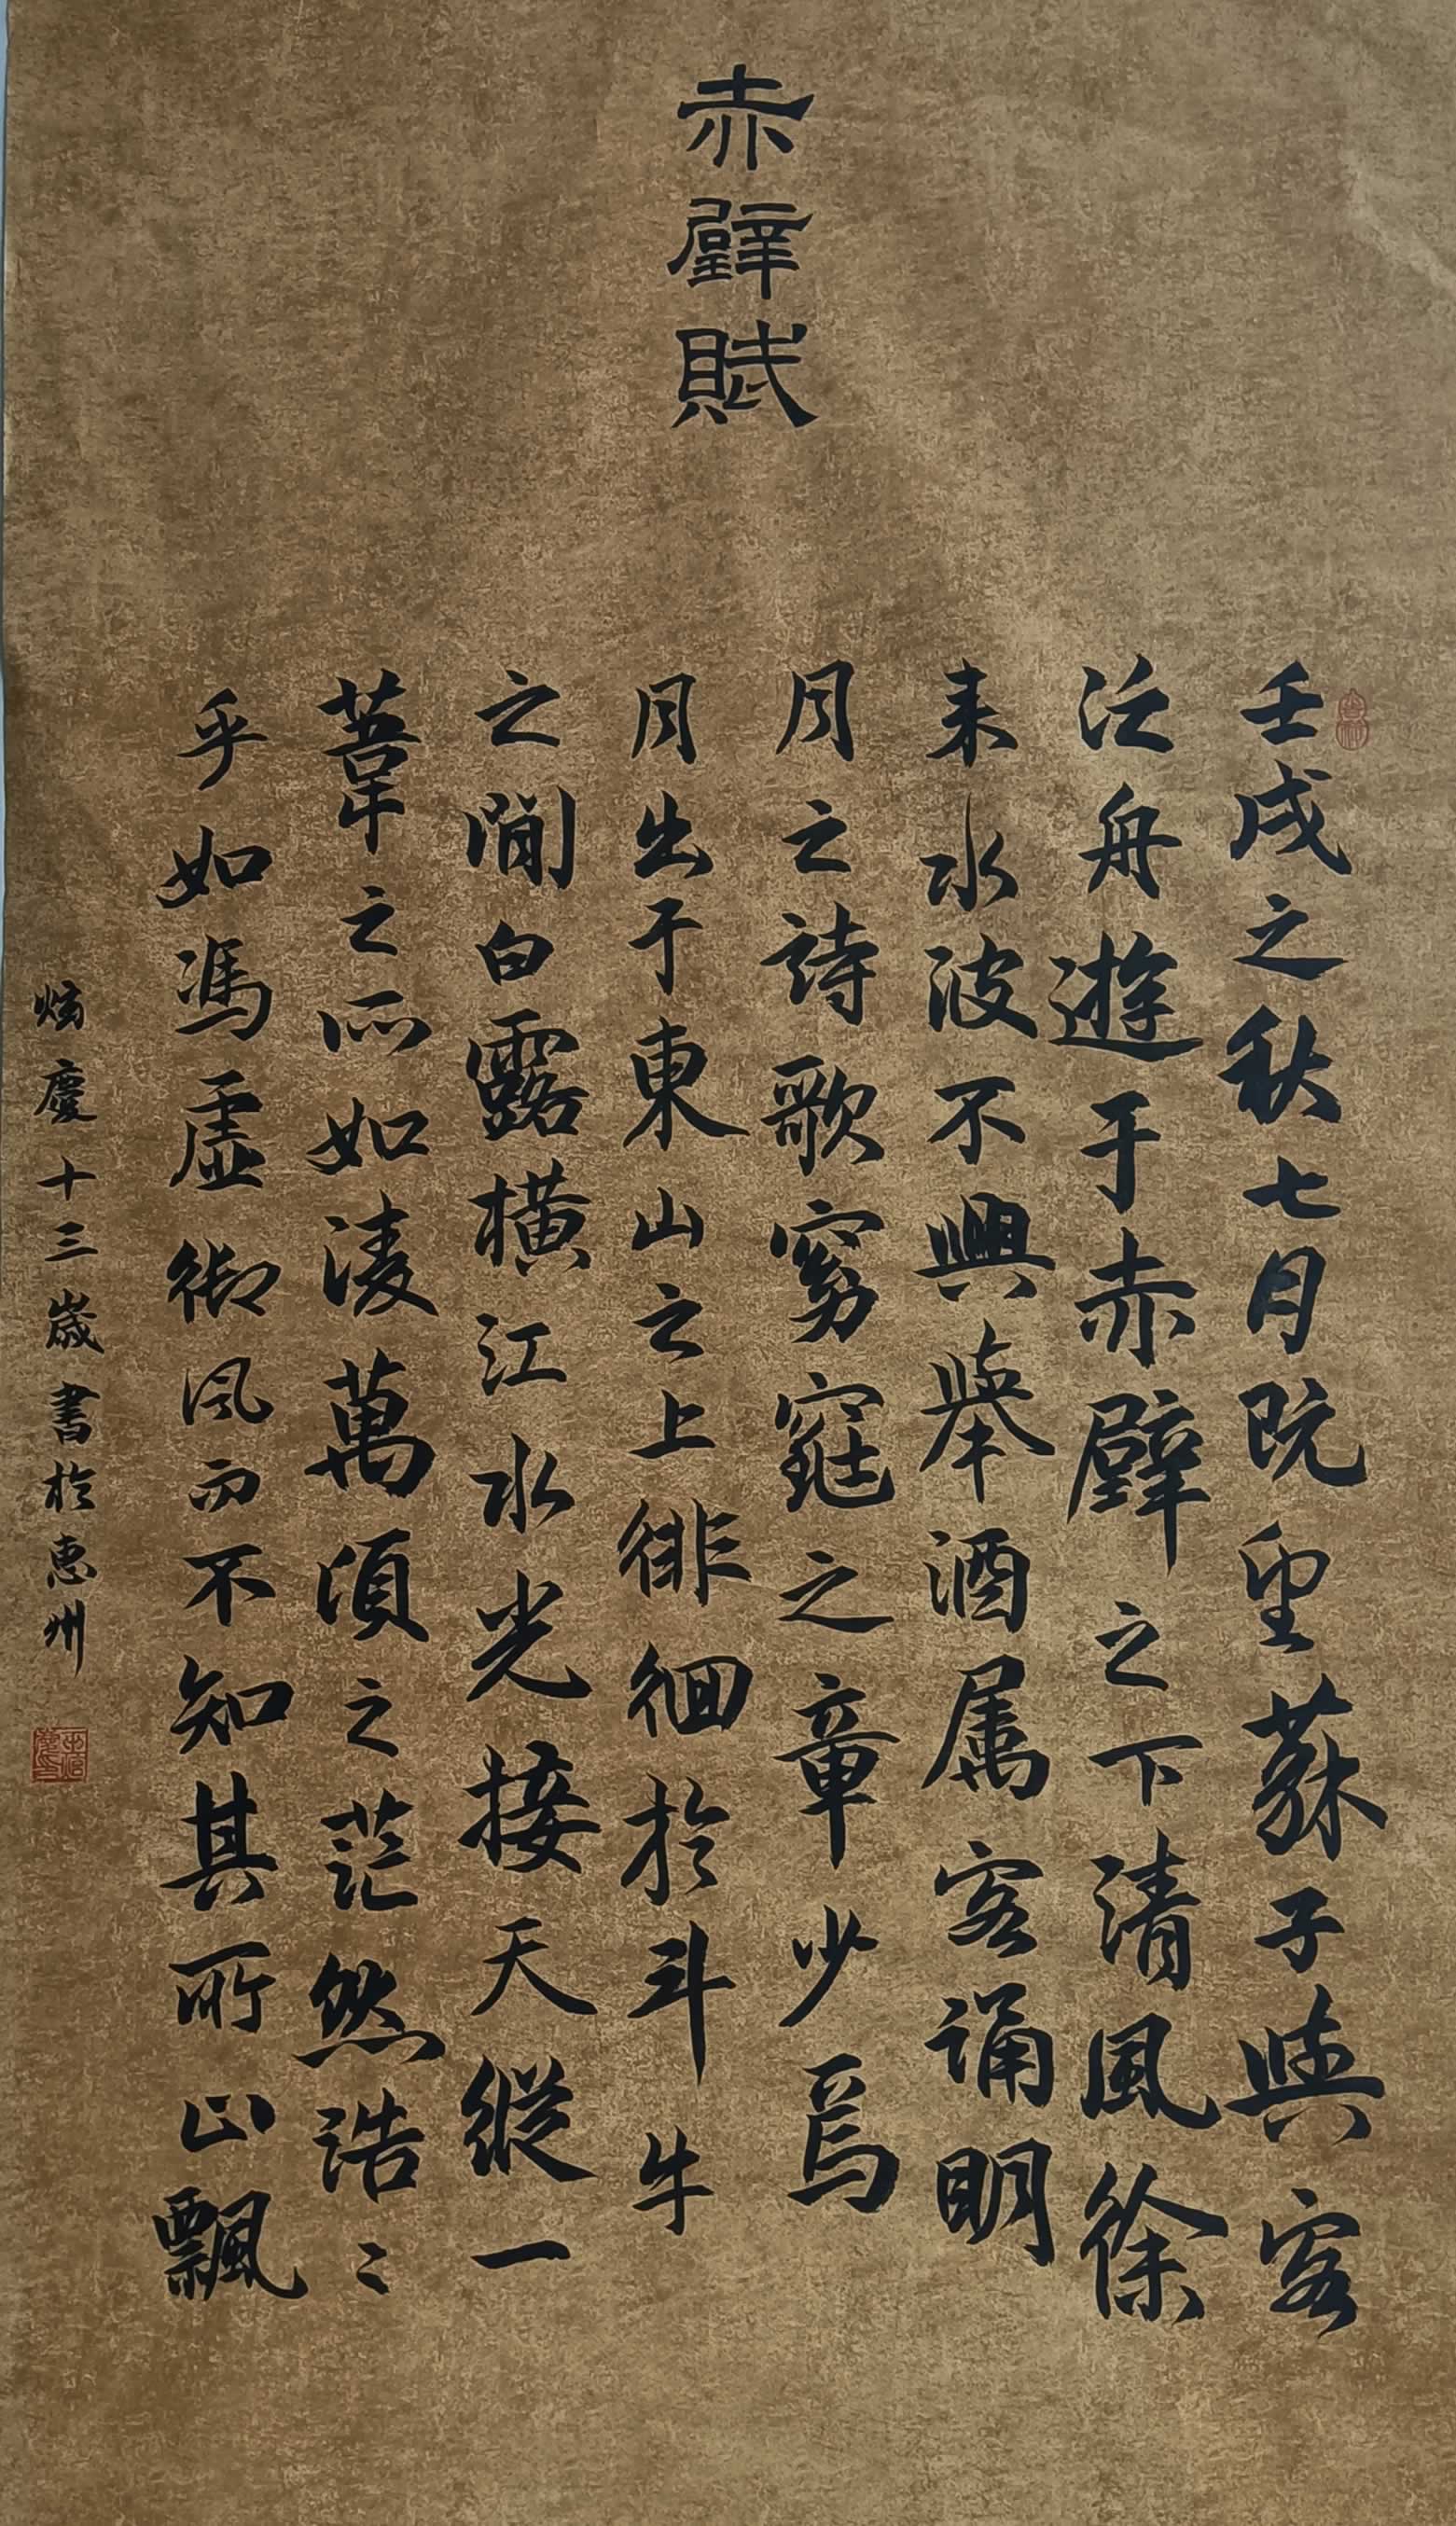 赤壁賦
壬戌之秋七月既望蘇子與客
泛舟遊于赤壁之下清風徐
来水波不興舉酒属客誦明
月之詩歌窈窕之章少焉
月出于東山之上徘徊於斗牛
之間白露橫江水光接天縱一
葦之所如凌萬頃之茫然浩〻
乎如馮虛御風而不知其所止飄
炫慶十三歲書於惠州